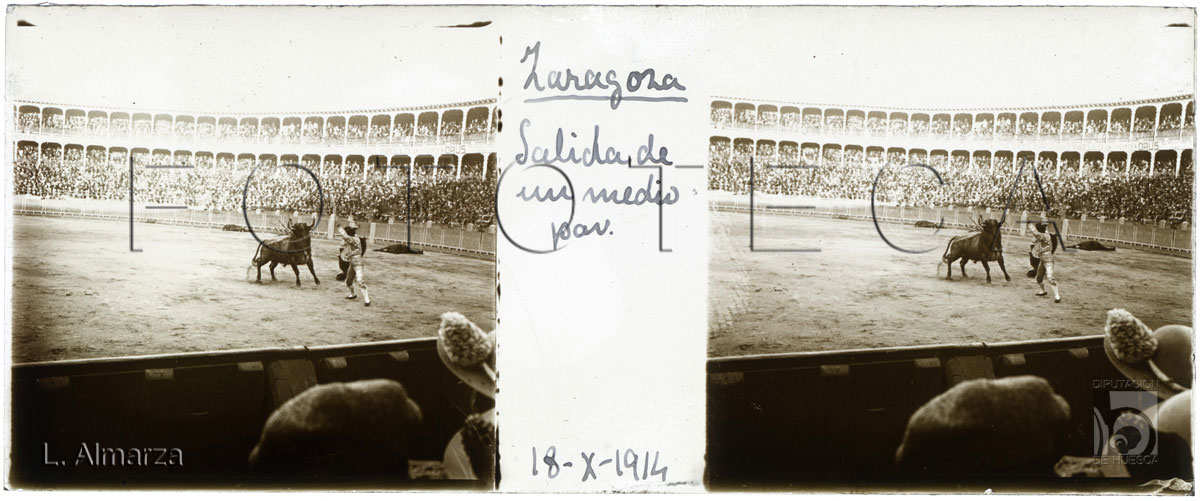 Zaragoza
Salida de
un medio
par.
18-X-1914
FOTOTECA
L. Almarza
DIPUTACIÓN
DE HUESCA